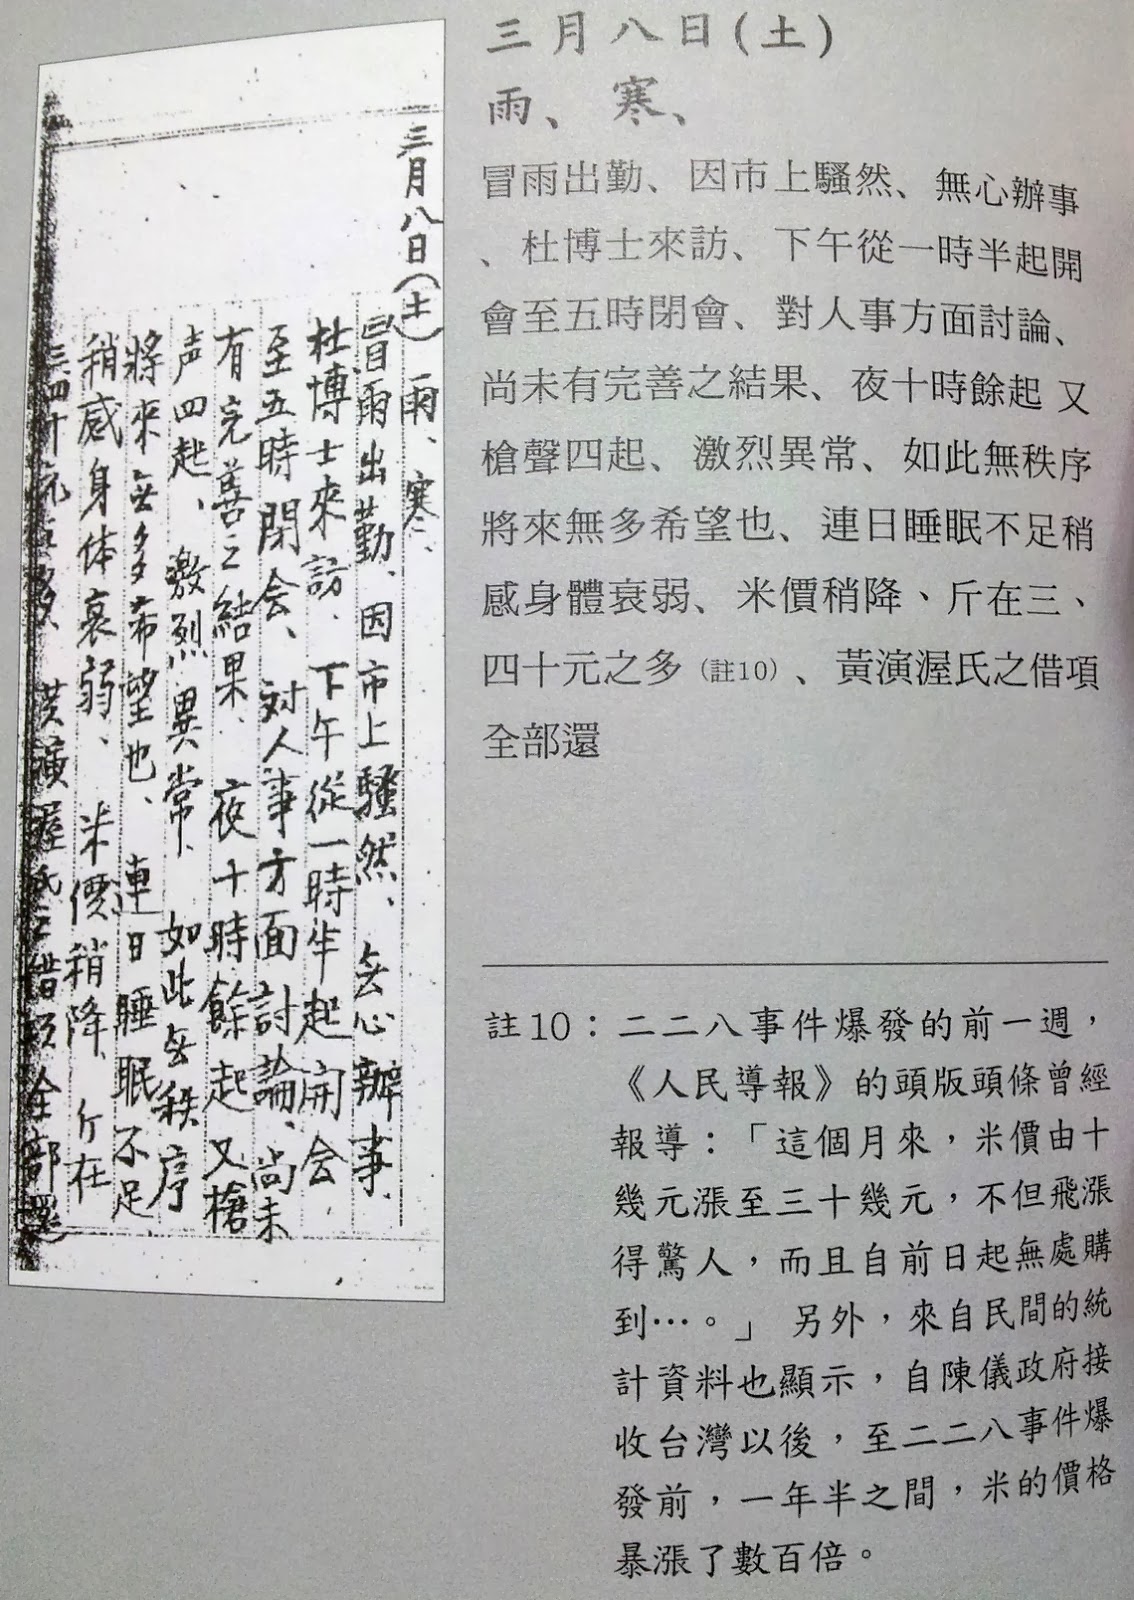 三月八日(土)雨、寒、
冒雨出勤、因市上騷然、無心辦事、
杜博士來訪、下午從一時半起開会
至五時閉会、対人事方面討論、尚未
有完善之結果、夜十時餘起又槍
声四起、激烈異常、如此無秩序
將來無多希望也、連日睡眠不足
稍感身体衰弱、米價稍降、斤在
三四十元之多、黃演渥氏之借項全部還
三月八日(土)
雨、寒、
冒雨出勤、因市上騷然、無心辦事
、杜博士來訪、下午從一時半起開
會至五時閉會、對人事方面討論、
尚未有完善之結果、夜十時餘起又
槍聲四起、激烈異常、如此無秩序
將來無多希望也、連日睡眠不足稍
感身體衰弱、米價稍降、斤在三、
四十元之多(註10)、黃演渥氏之借項
全部還
註10:二二八事件爆發的前一週,
《人民導報》的頭版頭條曾經
報導:「這個月來,米價由十
幾元漲至三十幾元,不但飛漲
得驚人,而且自前日起無處購
到…。」 另外,來自民間的統
計資料也顯示,自陳儀政府接
收台灣以後,至二二八事件爆
發前,一年半之間,米的價格
暴漲了數百倍。